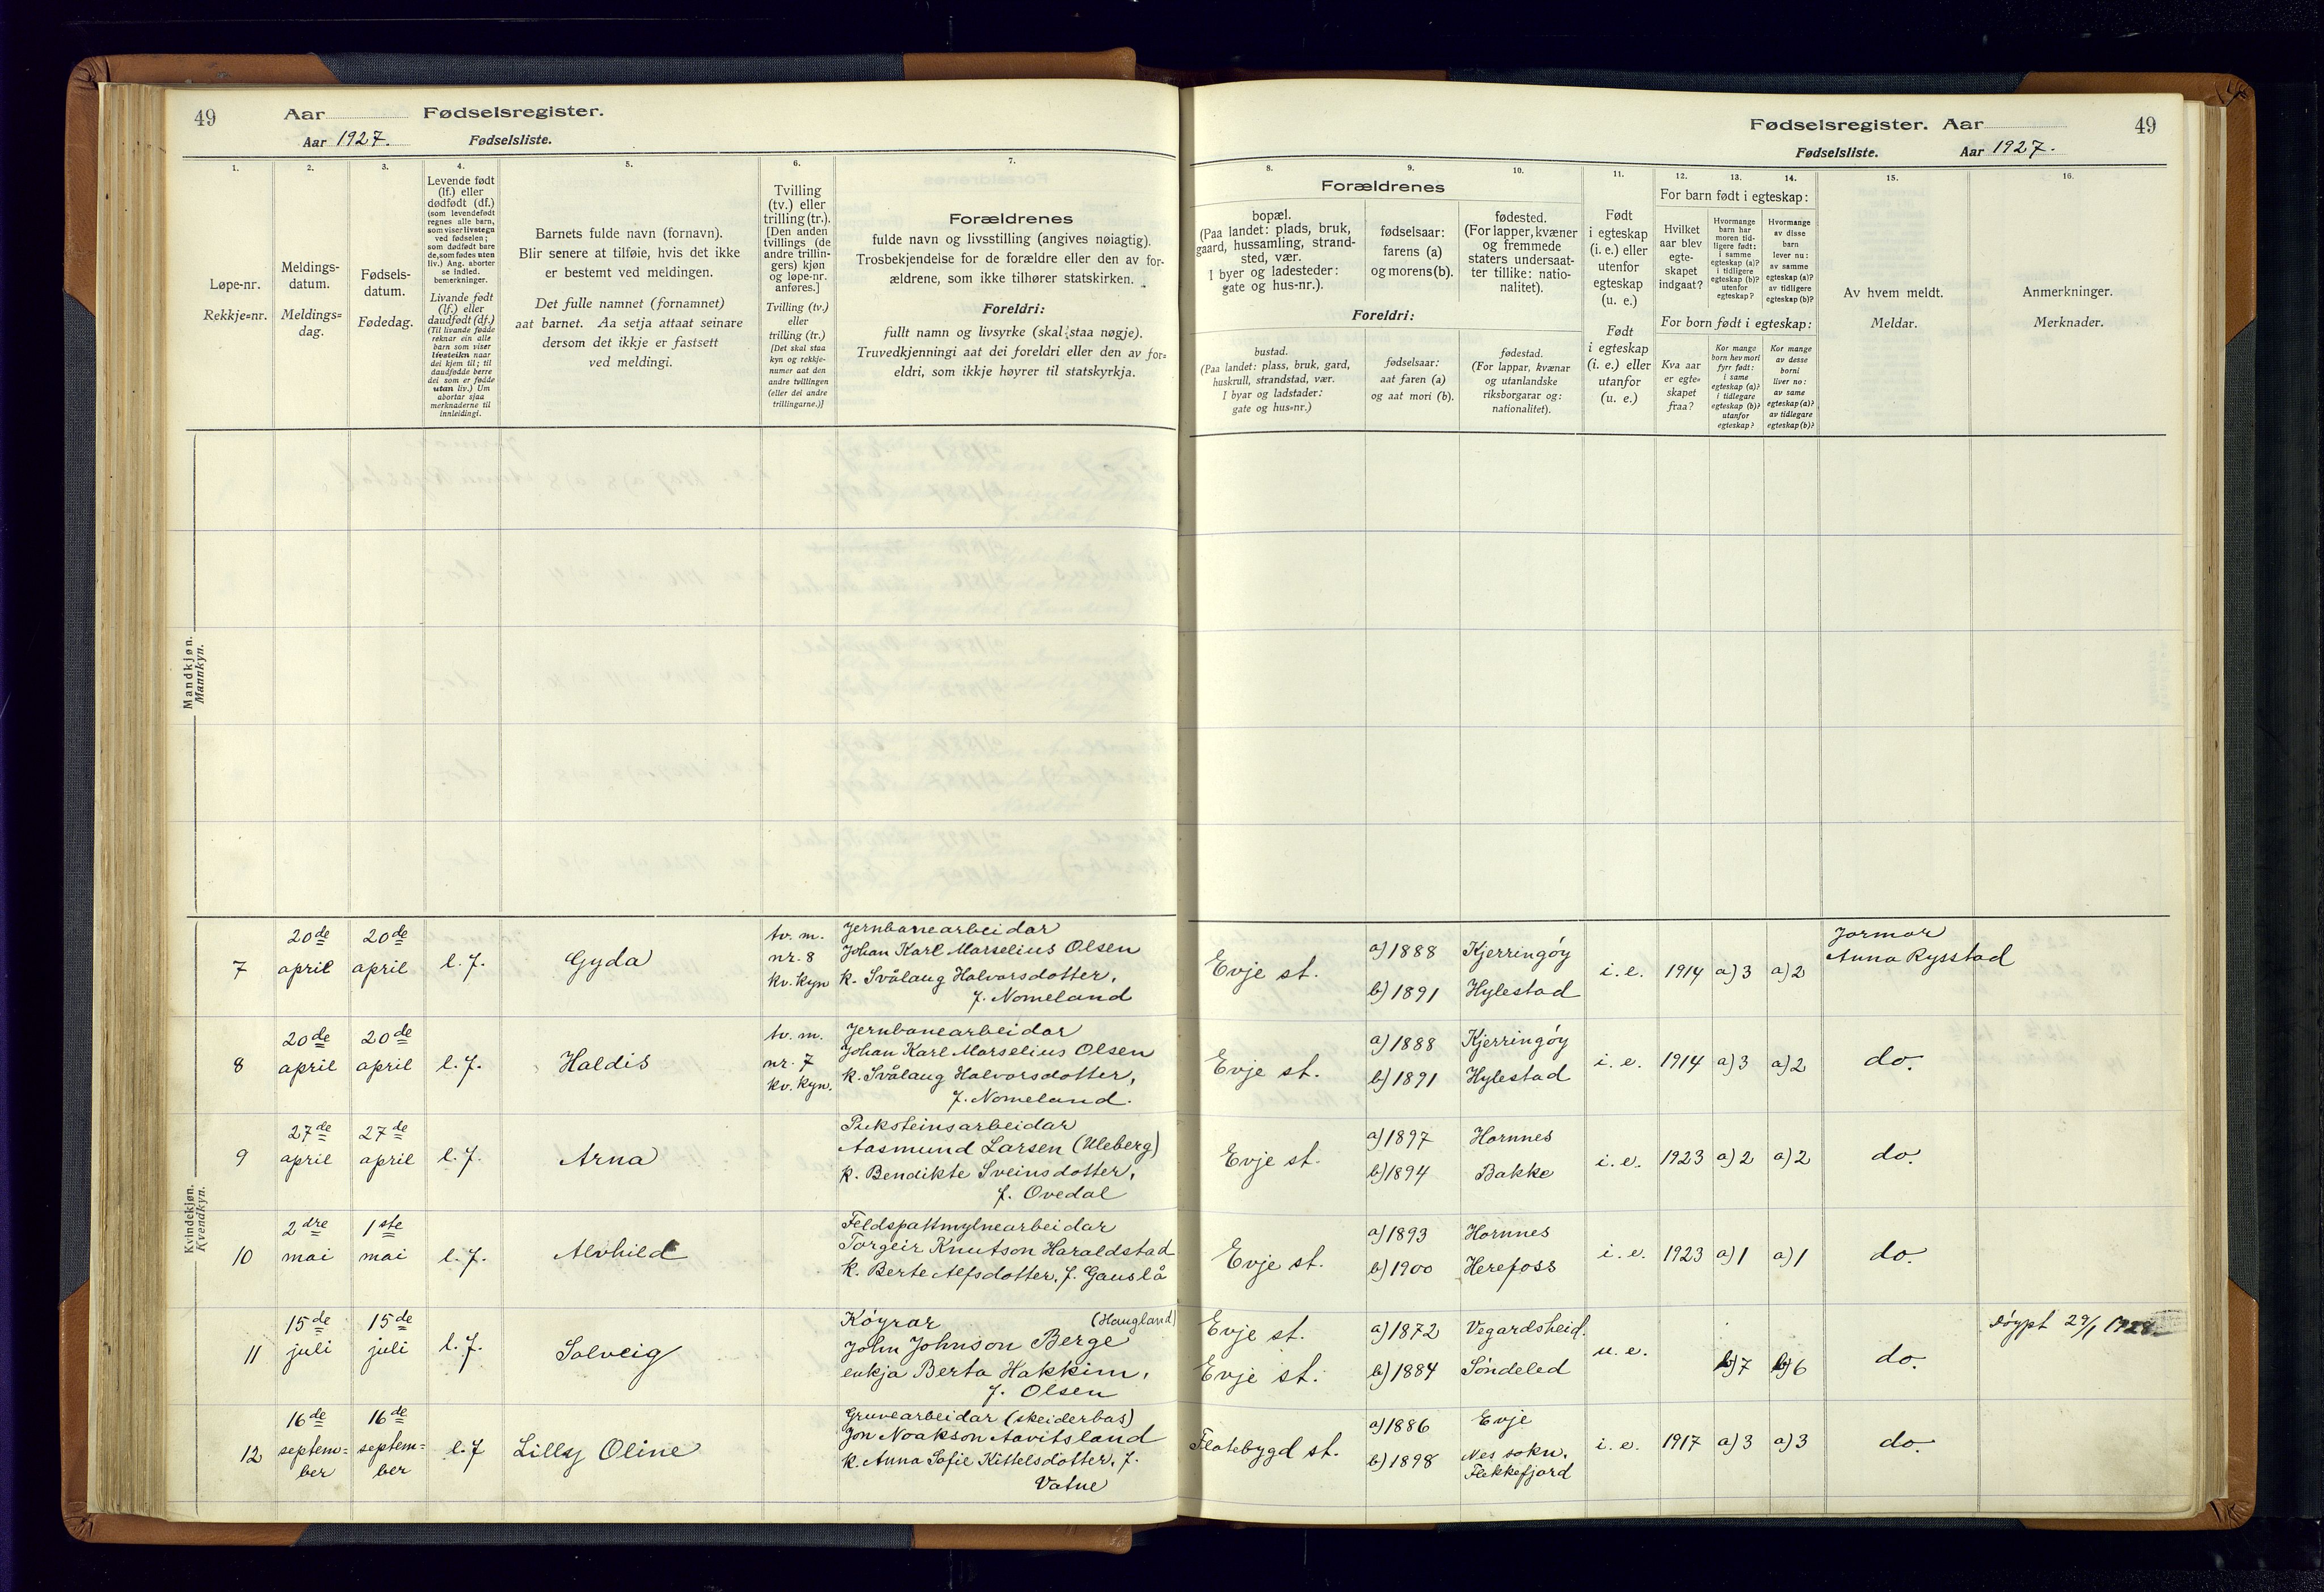 49
Aar Fødselsregister.
Aar 1927. Fødselsliste.
1.
2.
3.
4.
5.
6.
7.
Løpe-nr.
Rekkje=nr.
Meldings-
datum.
Meldings=
dag.
Fødsels-
datum.
Fødedag.
Levende født
(lf.) eller
dødfødt (df.)
(som levendefødt
regnes alle barn,
som viser livstegn
ved fødselen;
som dødfødt bare
de, som fødes uten
liv.) Ang. aborter
se indled.
bemerkninger.
Livande født
(lf.) eller
daudfødt (df.)
(Til livande fødde
reknar ein alle
barn som viser
livsteikn naar
dei kjem til; til
daudfødde berre
dei som er fødde
utan liv.) Um
abortar sjaa
merknaderne til
innleidingi.
Barnets fulde navn (fornavn).
Blir senere at tilføie, hvis det ikke
er bestemt ved meldingen.
Det fulle namnet (fornamnet)
aat barnet. Aa setja attaat seinare
dersom det ikkje er fastsett
ved meldingi.
Tvilling
(tv.) eller
trilling (tr.).
[Den anden
tvillings (de
andre trillin-
gers) kjøn
og løpe-nr.
anføres.]
Tvilling (tv.)
eller
trilling (tr.)
[Det skal staa
kyn og rekkje-
numer aat den
andre tvillingen
(eller dei andre
trillingarne.)]
Forældrenes
fulde navn og livsstilling (angives nøiagtig).
Trosbekjendelse for de forældre eller den av for-
ældrene, som ikke tilhører statskirken.
Foreldri:
fullt namn og livsyrke (skal staa nøgje).
Truvedkjenningi aat dei foreldri eller den av for=
eldri, som ikkje høyrer til statskyrkja.
Mandkjøn.
Mannkyn.
Kvindekjøn.
Kvendkyn.
7
20de april
20de april
l. f.
Gyda
tv. m.
nr. 8
kv. kyn
Jernbanearbeidar
Johan Karl Marselius Olsen
k. Svålaug Halvorsdotter,
f. Nomeland
8
20de april
20de april
l. f.
Haldis
tv. m.
nr. 7
kv. kyn.
Jernbanearbeidar
Johan Karl Marselius Olsen
k. Svålaug Halvorsdotter,
f. Nomeland.
9
27de april
27de april
l. f.
Arna
Aasmund Larsen (Uleberg)
k. Bendikte Sveinsdotter,
f. Ovedal
10
2dre mai
1ste mai
l. f.
Alvhild
Feldspattmylnearbeidar
Torgeir Knutson Haraldstad
k. Berte Alfsdotter, f. Gauslå
11
15de juli
15de juli
l. f.
Solveig
Køyrar (Haugland)
John Johnson Berge
enkja Berta Hakkim,
f. Olsen
12
16de septem=
ber
16de septem=
ber
l. f
Lilly Oline
Gruvearbeidar (skeiderbas)
Jon Noakson Aavitsland
k. Anna Sofie Kittelsdotter, f.
Vatne
Fødselsregister. Aar 49
Fødselsliste. Aar 1927.
8.
9.
10.
11.
12.
13.
14.
15.
16.
Forældrenes
bopæl.
(Paa landet: plads, bruk,
gaard, hussamling, strand-
sted, vær.
I byer og ladesteder:
gate og hus-nr.).
fødselsaar:
farens (a)
og morens (b).
fødested.
(For lapper, kvæner
og fremmede
staters undersaat-
ter tillike: natio-
nalitet).
Foreldri:
bustad.
(Paa landet: plass, bruk, gard,
huskrull, strandstad, vær.
I byar og ladstader:
gate og hus=nr.)
fødselsaar:
aat faren (a)
og aat mori (b).
fødestad.
(For lappar, kvænar
og utanlandske
riksborgarar og:
nationalitet).
Født
i egteskap
(i. e.) eller
utenfor
egteskap
(u. e.)
Født
i egteskap
(i. e.) eller
utanfor
(u. e.)
For barn født i egteskap:
Hvilket
aar blev
egte-
skapet
indgaat?
Hvormange
barn har
moren tid-
ligere født:
i samme
egteskap (a)?
i tidligere
egteskap (b)?
utenfor
egteskap?
Hvormange
av disse
barn
lever nu:
av samme
egteskap (a)?
av tidligere
egteskap (b)?
For born født i egteskap:
Kva aar
er egte=
skapet
fraa?
Kor mange
born hev mori
fyrr født:
i same
egteskap (a)?
i tidlegare
egteskap (b)?
utanfor
egteskap?
Kor mange
av desse
borni
liver no:
av same
egteskap (a)?
av tidlegare
egteskap (b)?
Av hvem meldt.
Meldar.
Anmerkninger.
Merknader.
Evje st.
a) 1888 Kjerringøy
b) 1891 Hylestad
i. e. 1914 a) 3 a) 2
Jormor
Anna Rysstad
Evje st.
a) 1888 Kjerringøy
b) 1891 Hylestad
i. e. 1914 a) 3 a) 2 do.
Evje st.
a) 1897 Hornnes
b) 1894 Bakke
i. e. 1923 a) 2 a) 2 do.
Evje st.
a) 1893 Hornnes
b) 1900 Herefoss
i. e. 1923 a) 1 a) 1 do.
Evje st. a) 1872 Vegardsheid.
Evje st. b) 1884 Søndeled
u. e. b) 7 b) 6 do.
døypt 29/1 1928
Flatebygd st.
a) 1886 Evje
b) 1898 Nes sokn,
Flekkefjord
i. e. 1917 a) 3 a) 3 do.